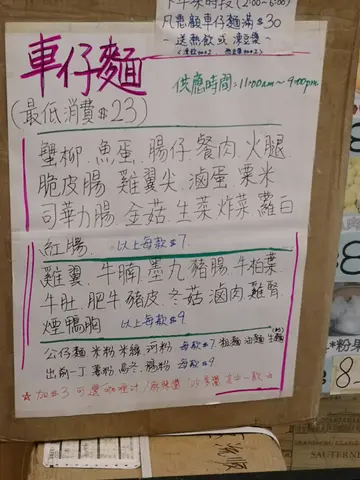 下午茶時段(2:00~6:00)
凡惠顧車仔麵滿$30
~送熱飲或凍豆漿~
車仔麵
供應時間:11:00am~9:00pm
(最低消費$23)
蟹柳.魚蛋.腸仔.餐肉.火腿
脆皮腸.雞翼尖.滷蛋.粟米
司華力腸.金菇.生菜.炸菜.蘿白
紅腸. 以上每款$7.
雞翼.牛腩.墨丸.豬腸.牛柏葉
牛肚.肥牛.豬皮.冬菇.滷肉.雞腎.
煙鴨胸 以上每款$9
公仔麵.米粉.米線.河粉.每款$7.粗麵.油麵.生麵
出前一丁.薯粉.烏冬.腸粉.每款$9
☆加$3可選咖喱汁/麻辣醬/沙爹醬 其中一款☆
*粉果
$8
SAUTERNE